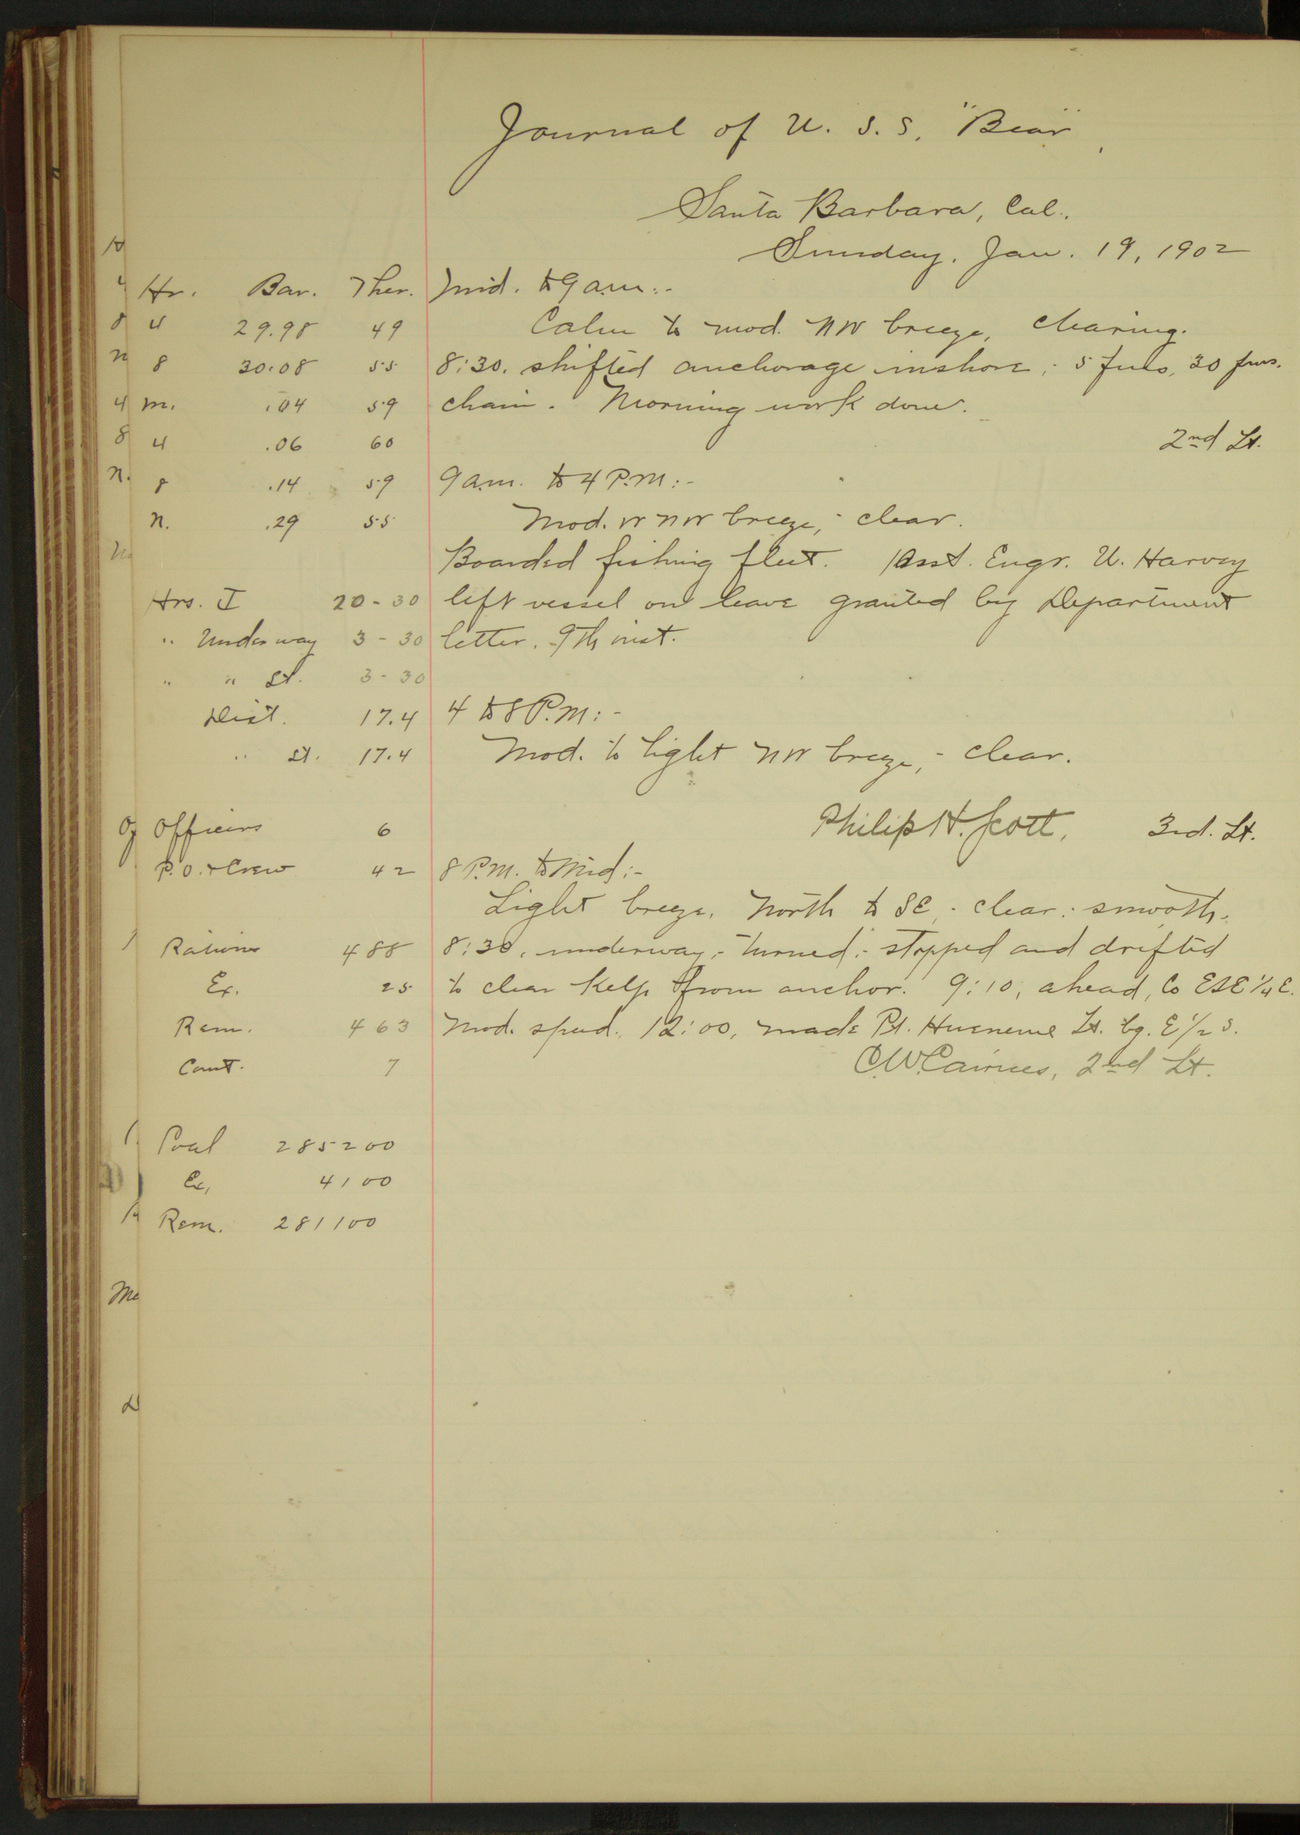 Journal of U. S. S. "Bear",
Santa Barbara, Cal.
Sunday, Jan. 19, 1902
Hr. Bar. Ther. Mid. to 9 a.m.:-
4 29.98 49 Calm to mod. NW breeze, clearing.
8 30.08 55 8:30. shifted anchorage inshore; 5 fms, 30 fms.
m. .04 59 chain. Morning work done.
4 .06 60 2nd Lt.
8 .14 59 9 a.m. to 4 P.M:-
N. .29 55 Mod. W NW breeze;- clear.
Boarded fishing fleet. Asst. Engr. U. Harvey
Hrs. 20-30 left vessel on leave granted by Department
" Underway 3-30 letter. 9th inst.
" " St. 3-30
Dist. 17.4 4 to 8 P.M:-
" St. 17.4 Mod. to light NW breeze,- clear.
Officers 6 Philip H. Scott, 3rd. Lt.
P.O. & Crew 42 8 P.M. to Mid:-
Light breeze, North to SE - clear: smooth.
Rations 488 8:30, underway,- turned:- stopped and drifted
Ex. 25 to clear kelp from anchor. 9:10, ahead, Co ESE 1/4 E.
Rem. 463 Mod. speed. 12:00, made Pt. Hueneme Lt. bg. E 1/2 S.
Comt. 7 C.W. Cairnes, 2nd Lt.
Coal 285200
Ex. 4100
Rem. 281100